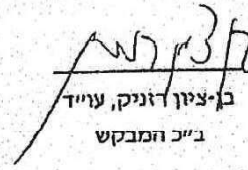 בן-ציון רזניק, עו״ד
ב״כ המבקש